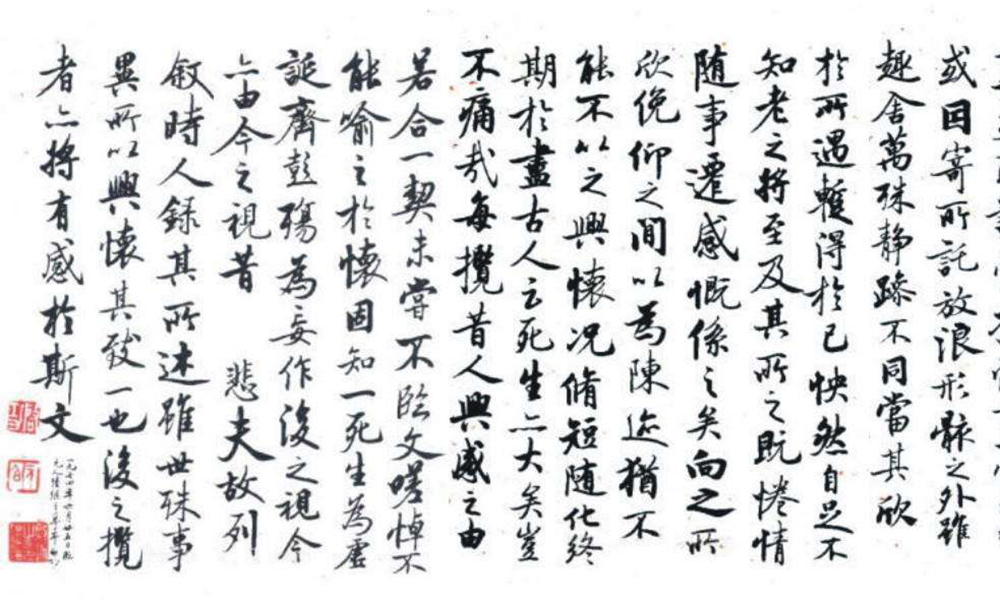 或因寄所託放浪形骸之外雖
趣舍萬殊静躁不同當其欣
於所遇蹔得於己怏然自足不
知老之將至及其所之既惓情
随事遷感慨係之矣向之所
欣俛仰之間以為陳迹猶不
能不以之興懷况脩短随化終
期於盡古人云死生亦大矣豈
不痛哉每攬昔人興感之由
若合一契未嘗不臨文嗟悼不
能喻之於懷固知一死生為虚
誕齊彭殤為妄作後之視今
亦由今之視昔 悲夫故列
叙時人録其所述雖世殊事
異所以興懷其致一也後之攬
者亦將有感於斯文